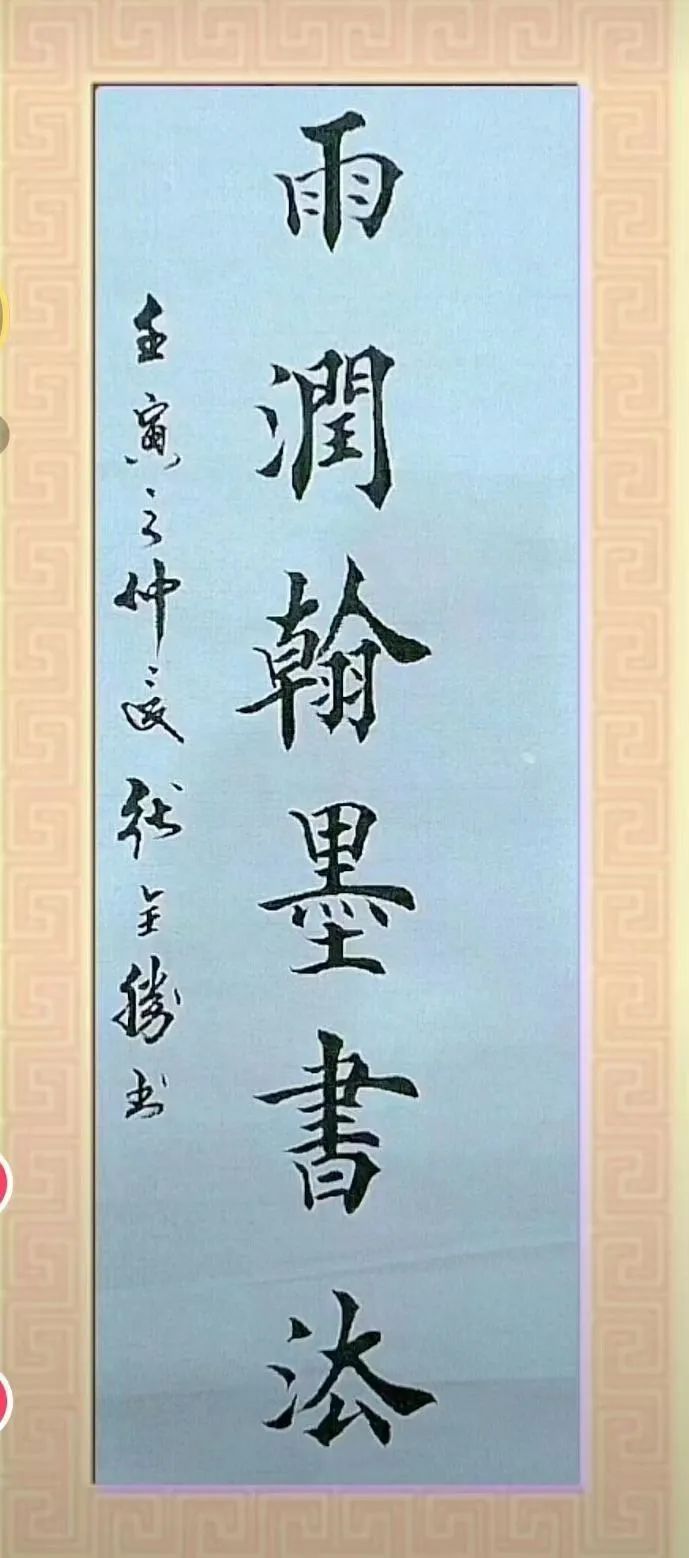 雨潤翰墨書法
壬寅之仲夏全勝书